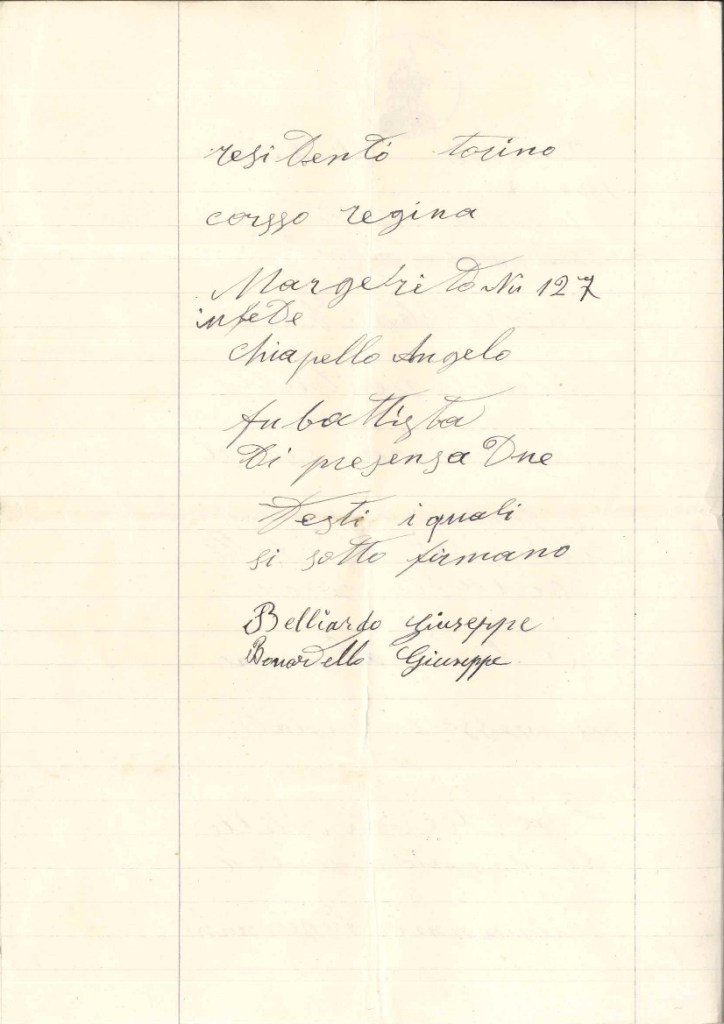 residenti torino
corsso regina
Margerita Nu 127
in fede
Chiapello Angelo
fu battista
Di presensa Due
Testi i quali
si sotto firmano
Belliardo Giuseppe
Bonardello Giuseppe